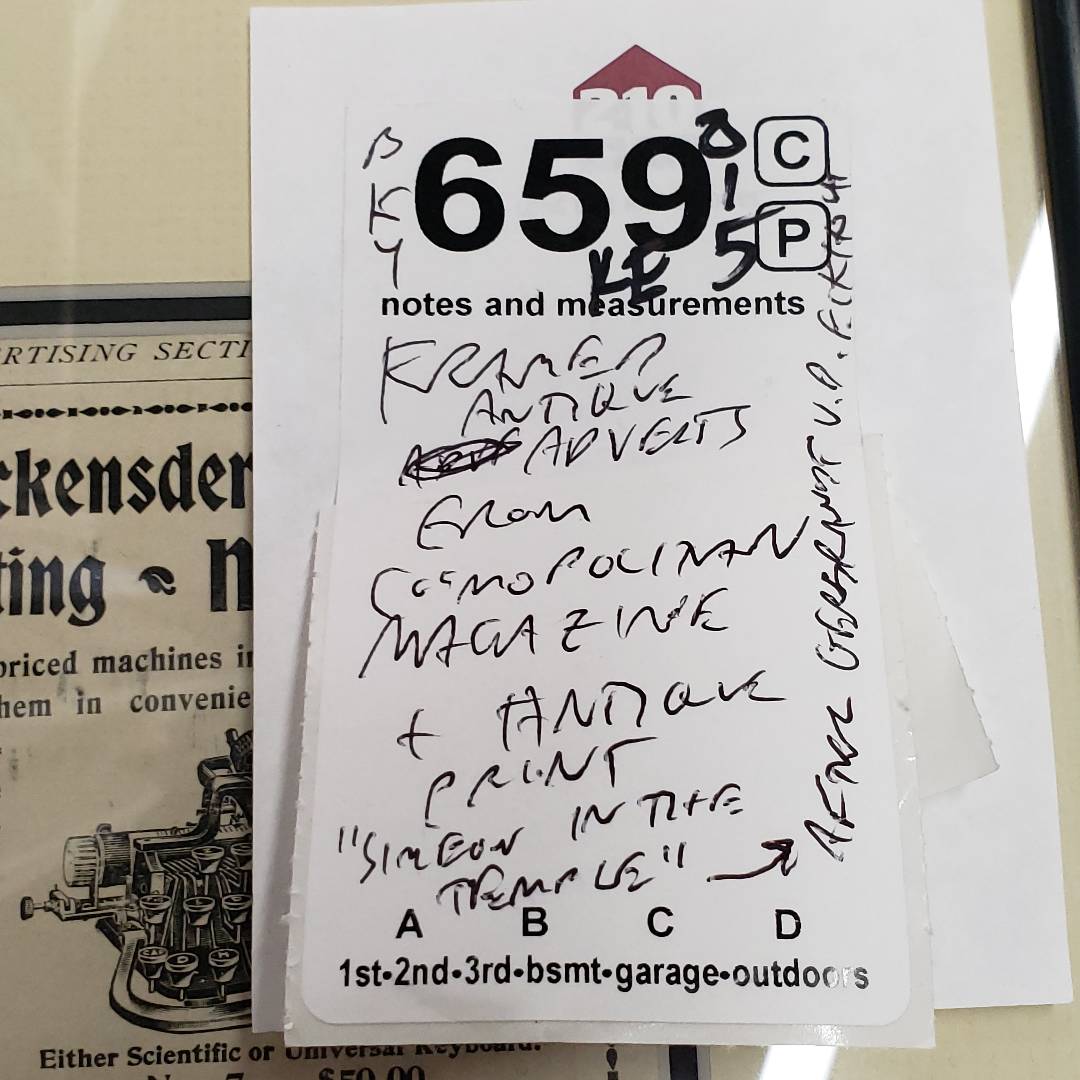 210
BKY
659
8
1
5
C
P
KE
notes and measurements
FRAMED
ANTIQUE
ADVERTS
FROM
COSMOPOLITAN
MAGAZINE
+ ANTIQUE
PRINT
"SIMEON IN THE
TEMPLE" →
AFTER GERBRANDT V.D. EECKHOUT
A B C D
1st•2nd•3rd•bsmt•garage•outdoors
RTISING SECTI
ckensder
ting
priced machines in
hem in convenie
Either Scientific or Universal Keyboard.
No. 7 $50.00